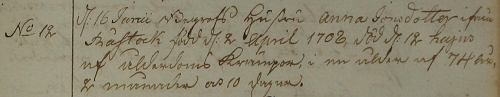 No 12 d: 16 Junii Begrofs Hustru Anna Jonsdotter ifrån
Kråstock född d: 2 April 1702, död d: 12 hujus
af ålderdoms Krämpor, i en ålder af 74 år,
2 månader och 10 dagar.